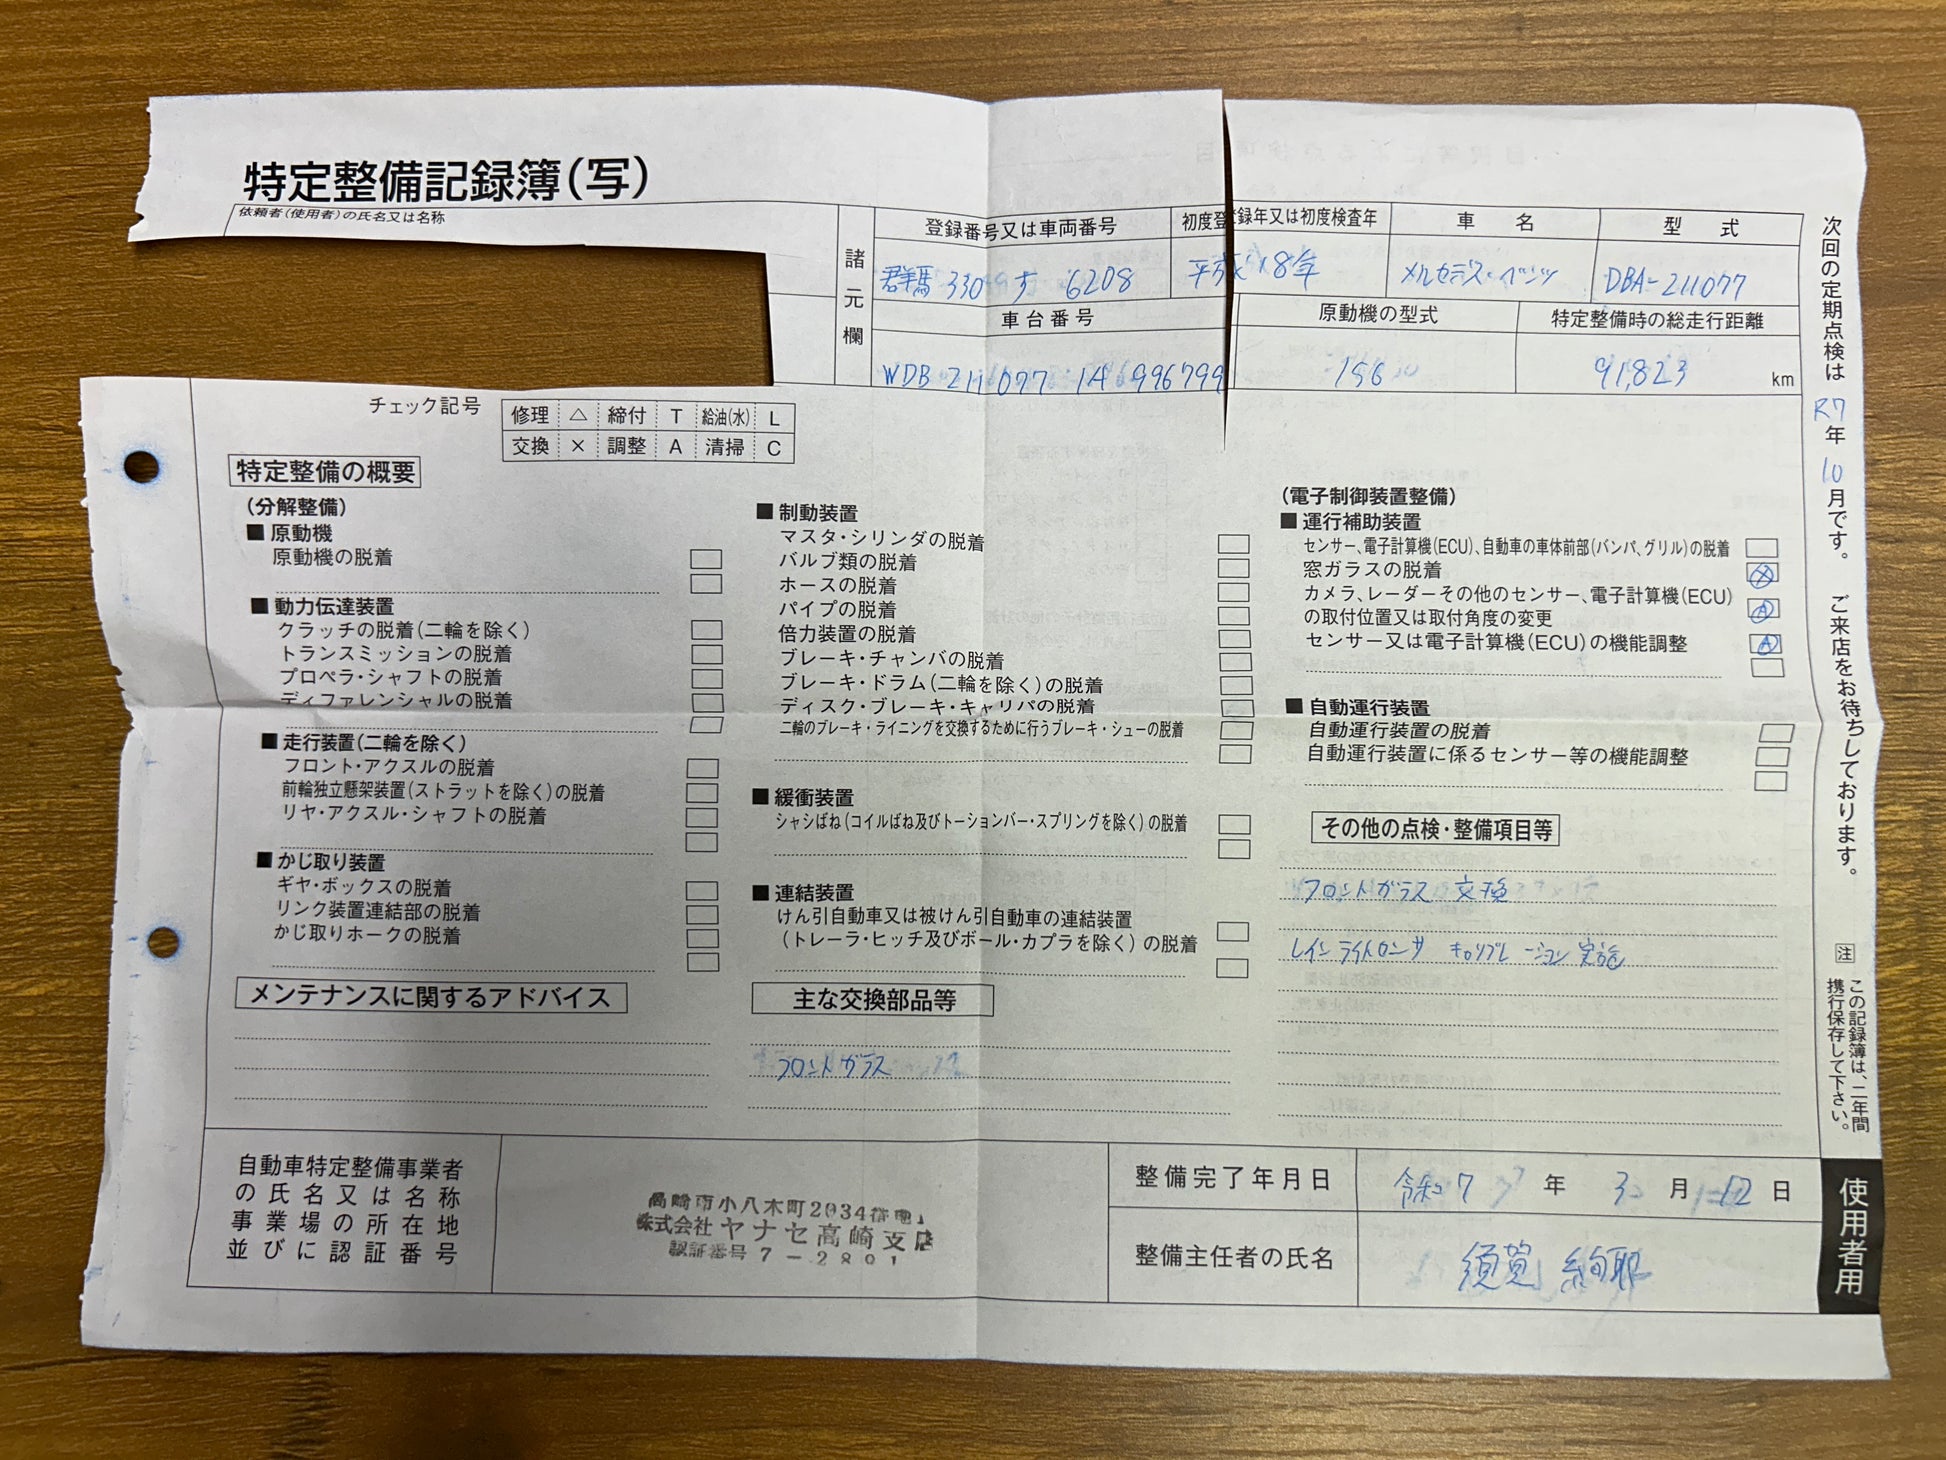 特定整備記録簿(写)
依頼者(使用者)の氏名又は名称
諸元欄
登録番号又は車両番号
初度登録年又は初度検査年
車名
型式
群馬 330 す 6208
平成18年
メルセデス・ベンツ
DBA-211077
車台番号
原動機の型式
特定整備時の総走行距離
WDB 211077 1A 996799
156
91,823 km
チェック記号
修理 △ 締付 T 給油(水) L
交換 × 調整 A 清掃 C
特定整備の概要
(分解整備)
■ 原動機
原動機の脱着
■ 動力伝達装置
クラッチの脱着(二輪を除く)
トランスミッションの脱着
プロペラ・シャフトの脱着
ディファレンシャルの脱着
■ 走行装置(二輪を除く)
フロント・アクスルの脱着
前輪独立懸架装置(ストラットを除く)の脱着
リヤ・アクスル・シャフトの脱着
■ かじ取り装置
ギヤ・ボックスの脱着
リンク装置連結部の脱着
かじ取りホークの脱着
■ 制動装置
マスタ・シリンダの脱着
バルブ類の脱着
ホースの脱着
パイプの脱着
倍力装置の脱着
ブレーキ・チャンバの脱着
ブレーキ・ドラム(二輪を除く)の脱着
ディスク・ブレーキ・キャリパの脱着
二輪のブレーキ・ライニングを交換するために行うブレーキ・シューの脱着
■ 緩衝装置
シャシばね(コイルばね及びトーションバー・スプリングを除く)の脱着
■ 連結装置
けん引自動車又は被けん引自動車の連結装置
(トレーラ・ヒッチ及びボール・カプラを除く)の脱着
(電子制御装置整備)
■ 運行補助装置
センサー、電子計算機(ECU)、自動車の車体前部(バンパ、グリル)の脱着
窓ガラスの脱着 ×
カメラ、レーダーその他のセンサー、電子計算機(ECU)
の取付位置又は取付角度の変更 A
センサー又は電子計算機(ECU)の機能調整 A
■ 自動運行装置
自動運行装置の脱着
自動運行装置に係るセンサー等の機能調整
その他の点検・整備項目等
フロントガラス 交換
レインライトセンサ キャリブレーション 実施
メンテナンスに関するアドバイス
主な交換部品等
フロントガラス
自動車特定整備事業者
の氏名又は名称
事業場の所在地
並びに認証番号
高崎市小八木町2034番地1
株式会社 ヤナセ高崎支店
認証番号 7-2801
整備完了年月日
令和7年 3月 12日
整備主任者の氏名
須賀 絢耶
次回の定期点検は R7年 10月です。 ご来店をお待ちしております。
注 この記録簿は、二年間
携行保存して下さい。
使用者用